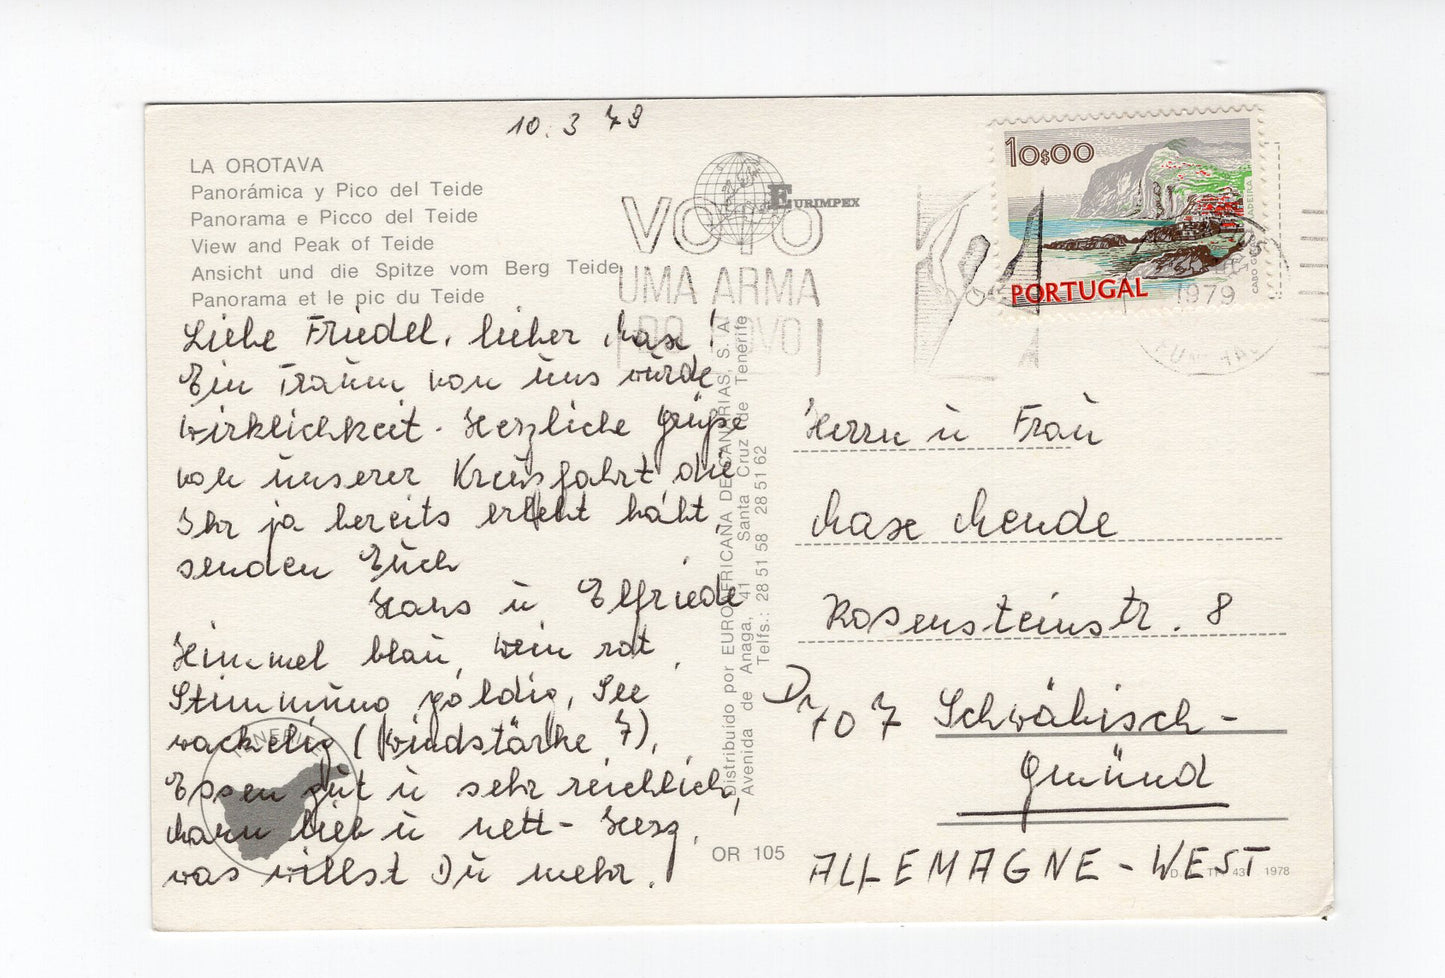 10. 3 79
LA OROTAVA
Panorámica y Pico del Teide
Panorama e Picco del Teide
View and Peak of Teide
Ansicht und die Spitze vom Berg Teide
Panorama et le pic du Teide
Liebe Friedel, lieber Max!
Ein Traum von uns wurde
Wirklichkeit. Herzliche Grüße
von unserer Kreuzfahrt, die
Ihr ja bereits erlebt habt,
senden Euch
Hans u Elfriede
Himmel blau, Wein rot,
Stimmung goldig, See
wackelig (Windstärke 7),
Essen gut u sehr reichlich,
Mann lieb u nett - Herz,
was willst Du mehr.
EURIMPEX
VOTO
UMA ARMA
DO POVO
Distribuido por EUROAFRICANA DE CANARIAS, S. A.
Avenida de Anaga, 41 Santa Cruz de Tenerife
Telfs.: 28 51 58 28 51 62
TENERIFE
OR 105
10$00
PORTUGAL
MADEIRA
CABO
1979
FUNCHAL
Herrn u Frau
Max Mende
Rosensteinstr. 8
D 707 Schwäbisch-
Gmünd
ALLEMAGNE-WEST
1978